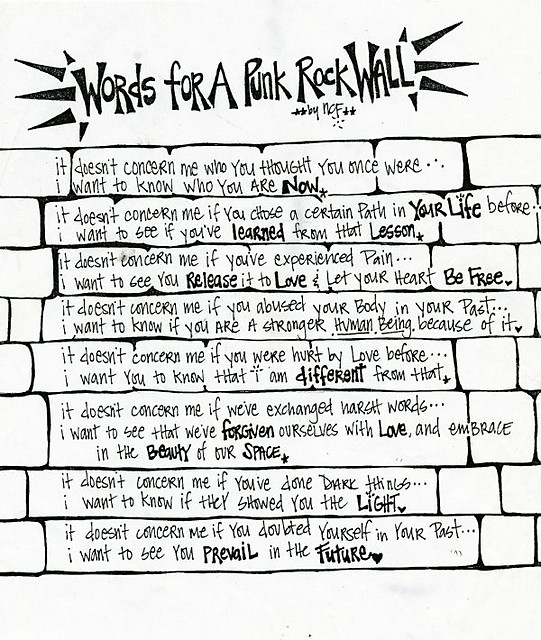 Words for A Punk Rock WALL
**by NCF**
it doesn't concern me who you thought you once were...
i want to know who you are Now.
it doesn't concern me if you chose a certain Path in Your Life before..
i want to see if you've learned from that Lesson.
it doesn't concern me if you've experienced Pain...
i want to see you Release it to Love & Let your Heart Be Free.
it doesn't concern me if you abused your Body in your Past...
i want to know if you are a stronger Human Being because of it.
it doesn't concern me if you were hurt by Love before...
i want you to know that i am different from that.
it doesn't concern me if we've exchanged harsh words...
i want to see that we've forgiven ourselves with Love, and embrace
in the Beauty of our Space.
it doesn't concern me if you've done Dark things...
i want to know if they showed you the Light.
it doesn't concern me if you doubted yourself in your Past...
i want to see you Prevail in the Future